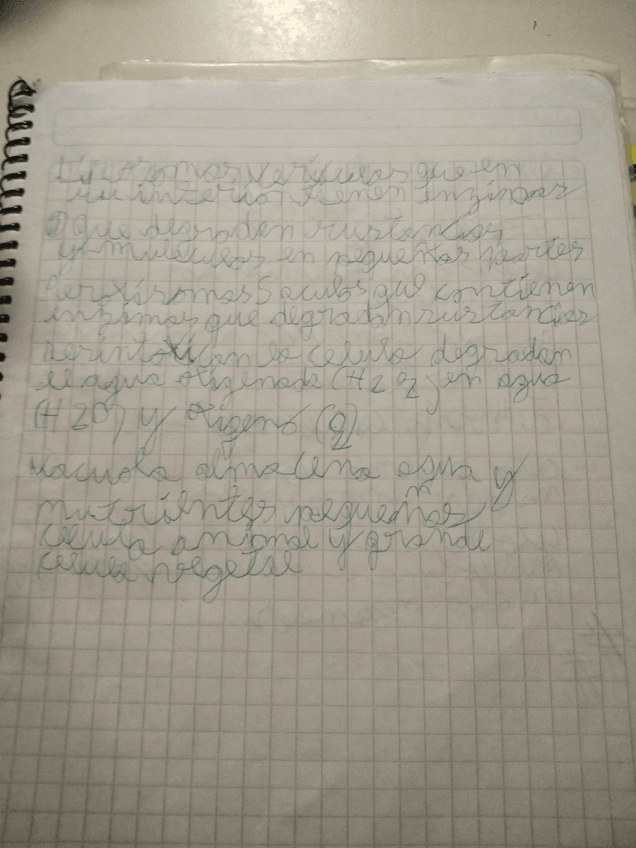 Liposomas vesiculas que en
su interior tienen inzimas
que degraden sustancias
y moleculas en pequeñas partes
Peroxisomas Saculos que contienen
enzimas que degradan sustancias
desintoxican la celula degradan
el agua oxigenada (H2O2) en agua
(H2O) y oxigeno (O2)
Vacuola almacena agua y
nutrientes pequeñas
celula animal y grande
celula vegetal